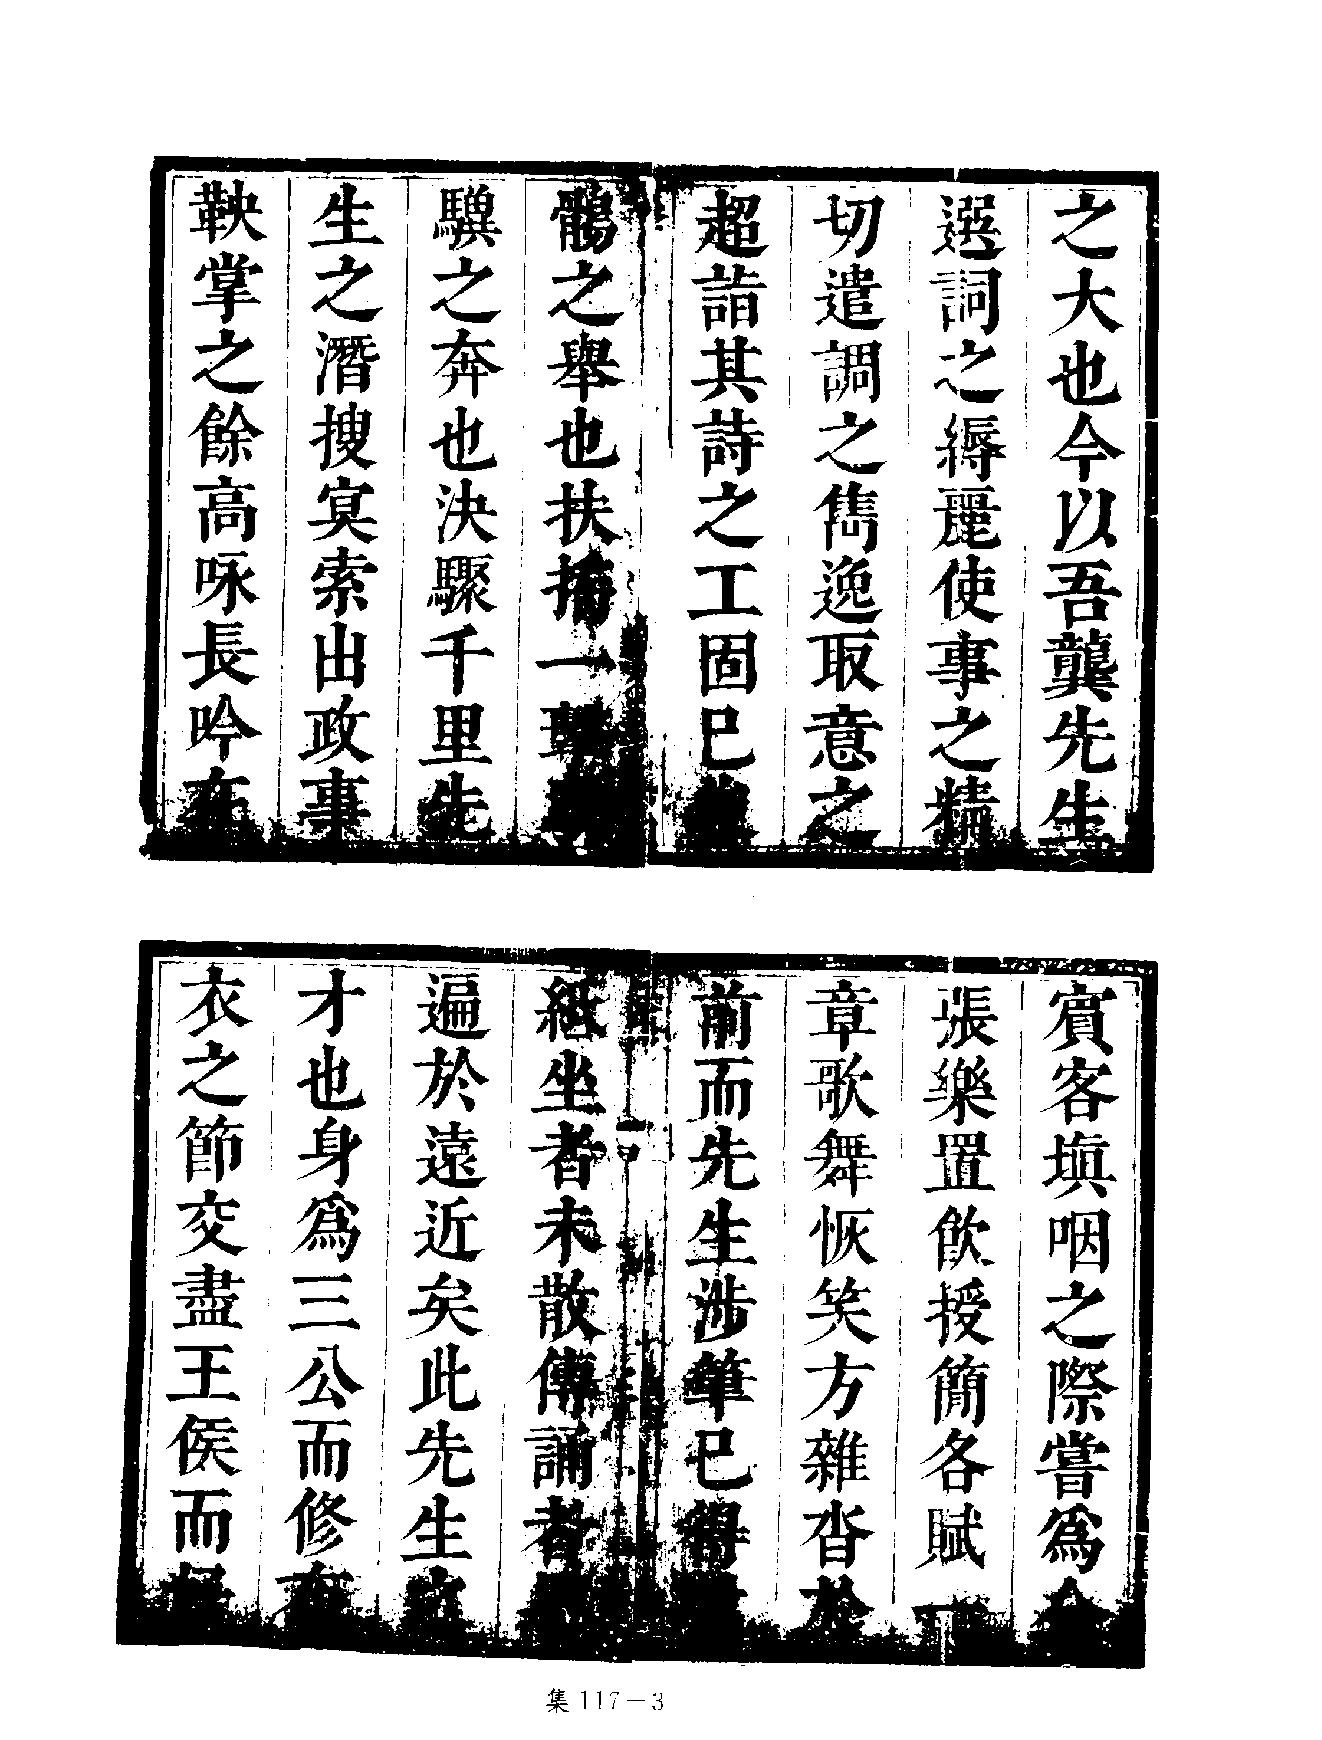 之大也今以吾龔先生
選詞之縟麗使事之精
切遣調之雋逸取意之
超詣其詩之工固已
鶻之舉也扶搖一
驥之奔也決驟千里先
生之潛搜冥索出政事
鞅掌之餘高咏長吟在
賓客塡咽之際嘗爲今
張樂置飮授簡各賦一
章歌舞恢笑方雜沓於
前而先生涉筆已得
紙坐者未散傳誦者
遍於遠近矣此先生之
才也身爲三公而修布
衣之節交盡王侯而
集117－3